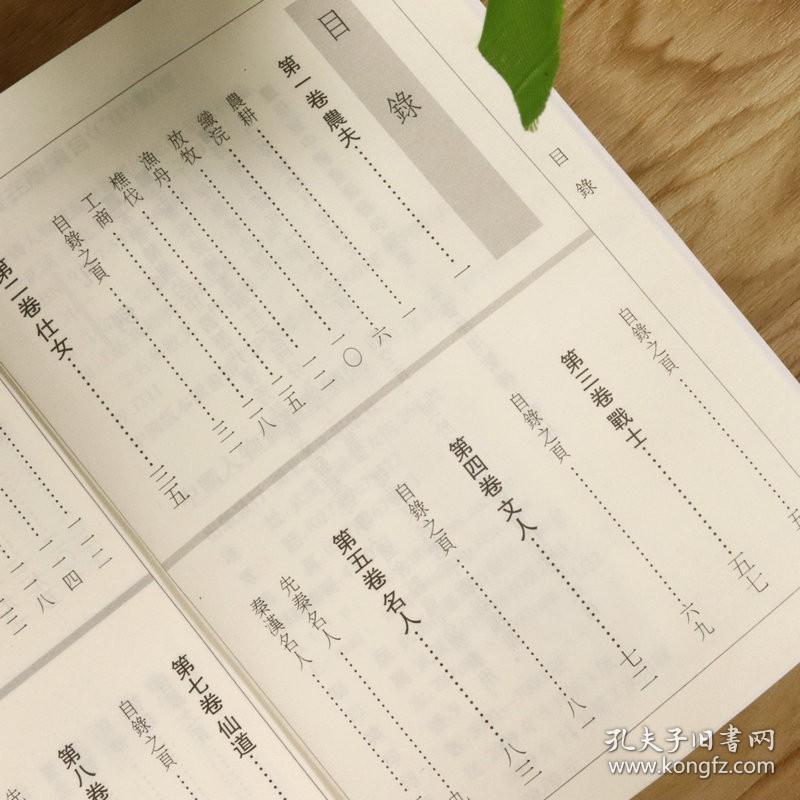 目錄
目錄
第一卷農夫……………一
農耕……………一
織浣……………六
放牧……………一〇
漁舟……………
樵伐……………
工商……………
自錄之頁……………
第二卷仕女……………三五
自錄之頁……………
第三卷戰士……………五七
自錄之頁……………六九
第四卷文人……………七二
自錄之頁……………八一
第五卷名人……………八三
先秦名人……………
秦漢名人……………
第七卷仙道……………
自錄之頁……………
第八卷
先
孔夫子旧書网
www.kongfz.com